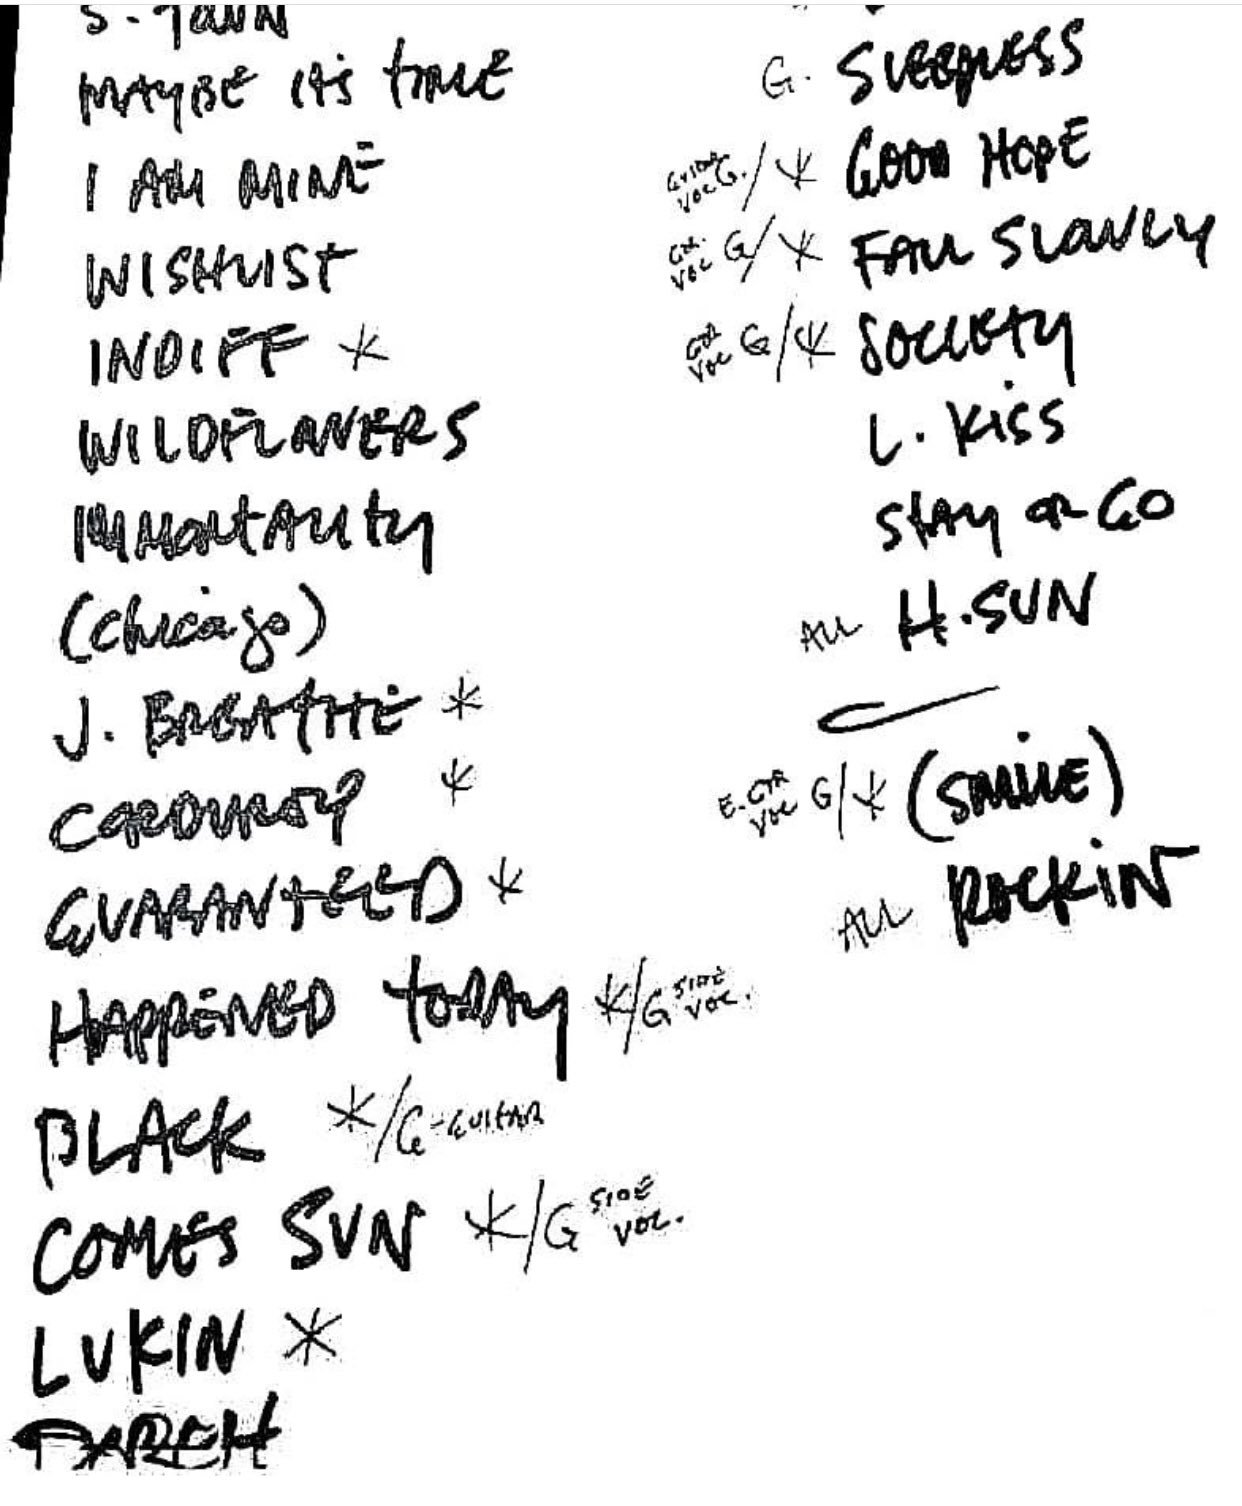 S. TOWN
MAYBE it's time
I AM MINE
WISHLIST
INDIFF *
WILDFLOWERS
IMMORTALITY
(chicago)
J. BREATHE *
CORDUROY *
GUARANTEED *
HAPPENED TODAY */G SIDE VOC.
BLACK */G-GUITAR
COMES SUN */G SIDE VOC.
LUKIN *
PORCH
G. SLEEPLESS
GUITAR VOC G./* GOOD HOPE
GTR VOC G/* FALL SLOWLY
GTR VOC G/* SOCIETY
L. KISS
STAY OR GO
ALL H. SUN
E. GTR VOC G/* (SMILE)
ALL ROCKIN